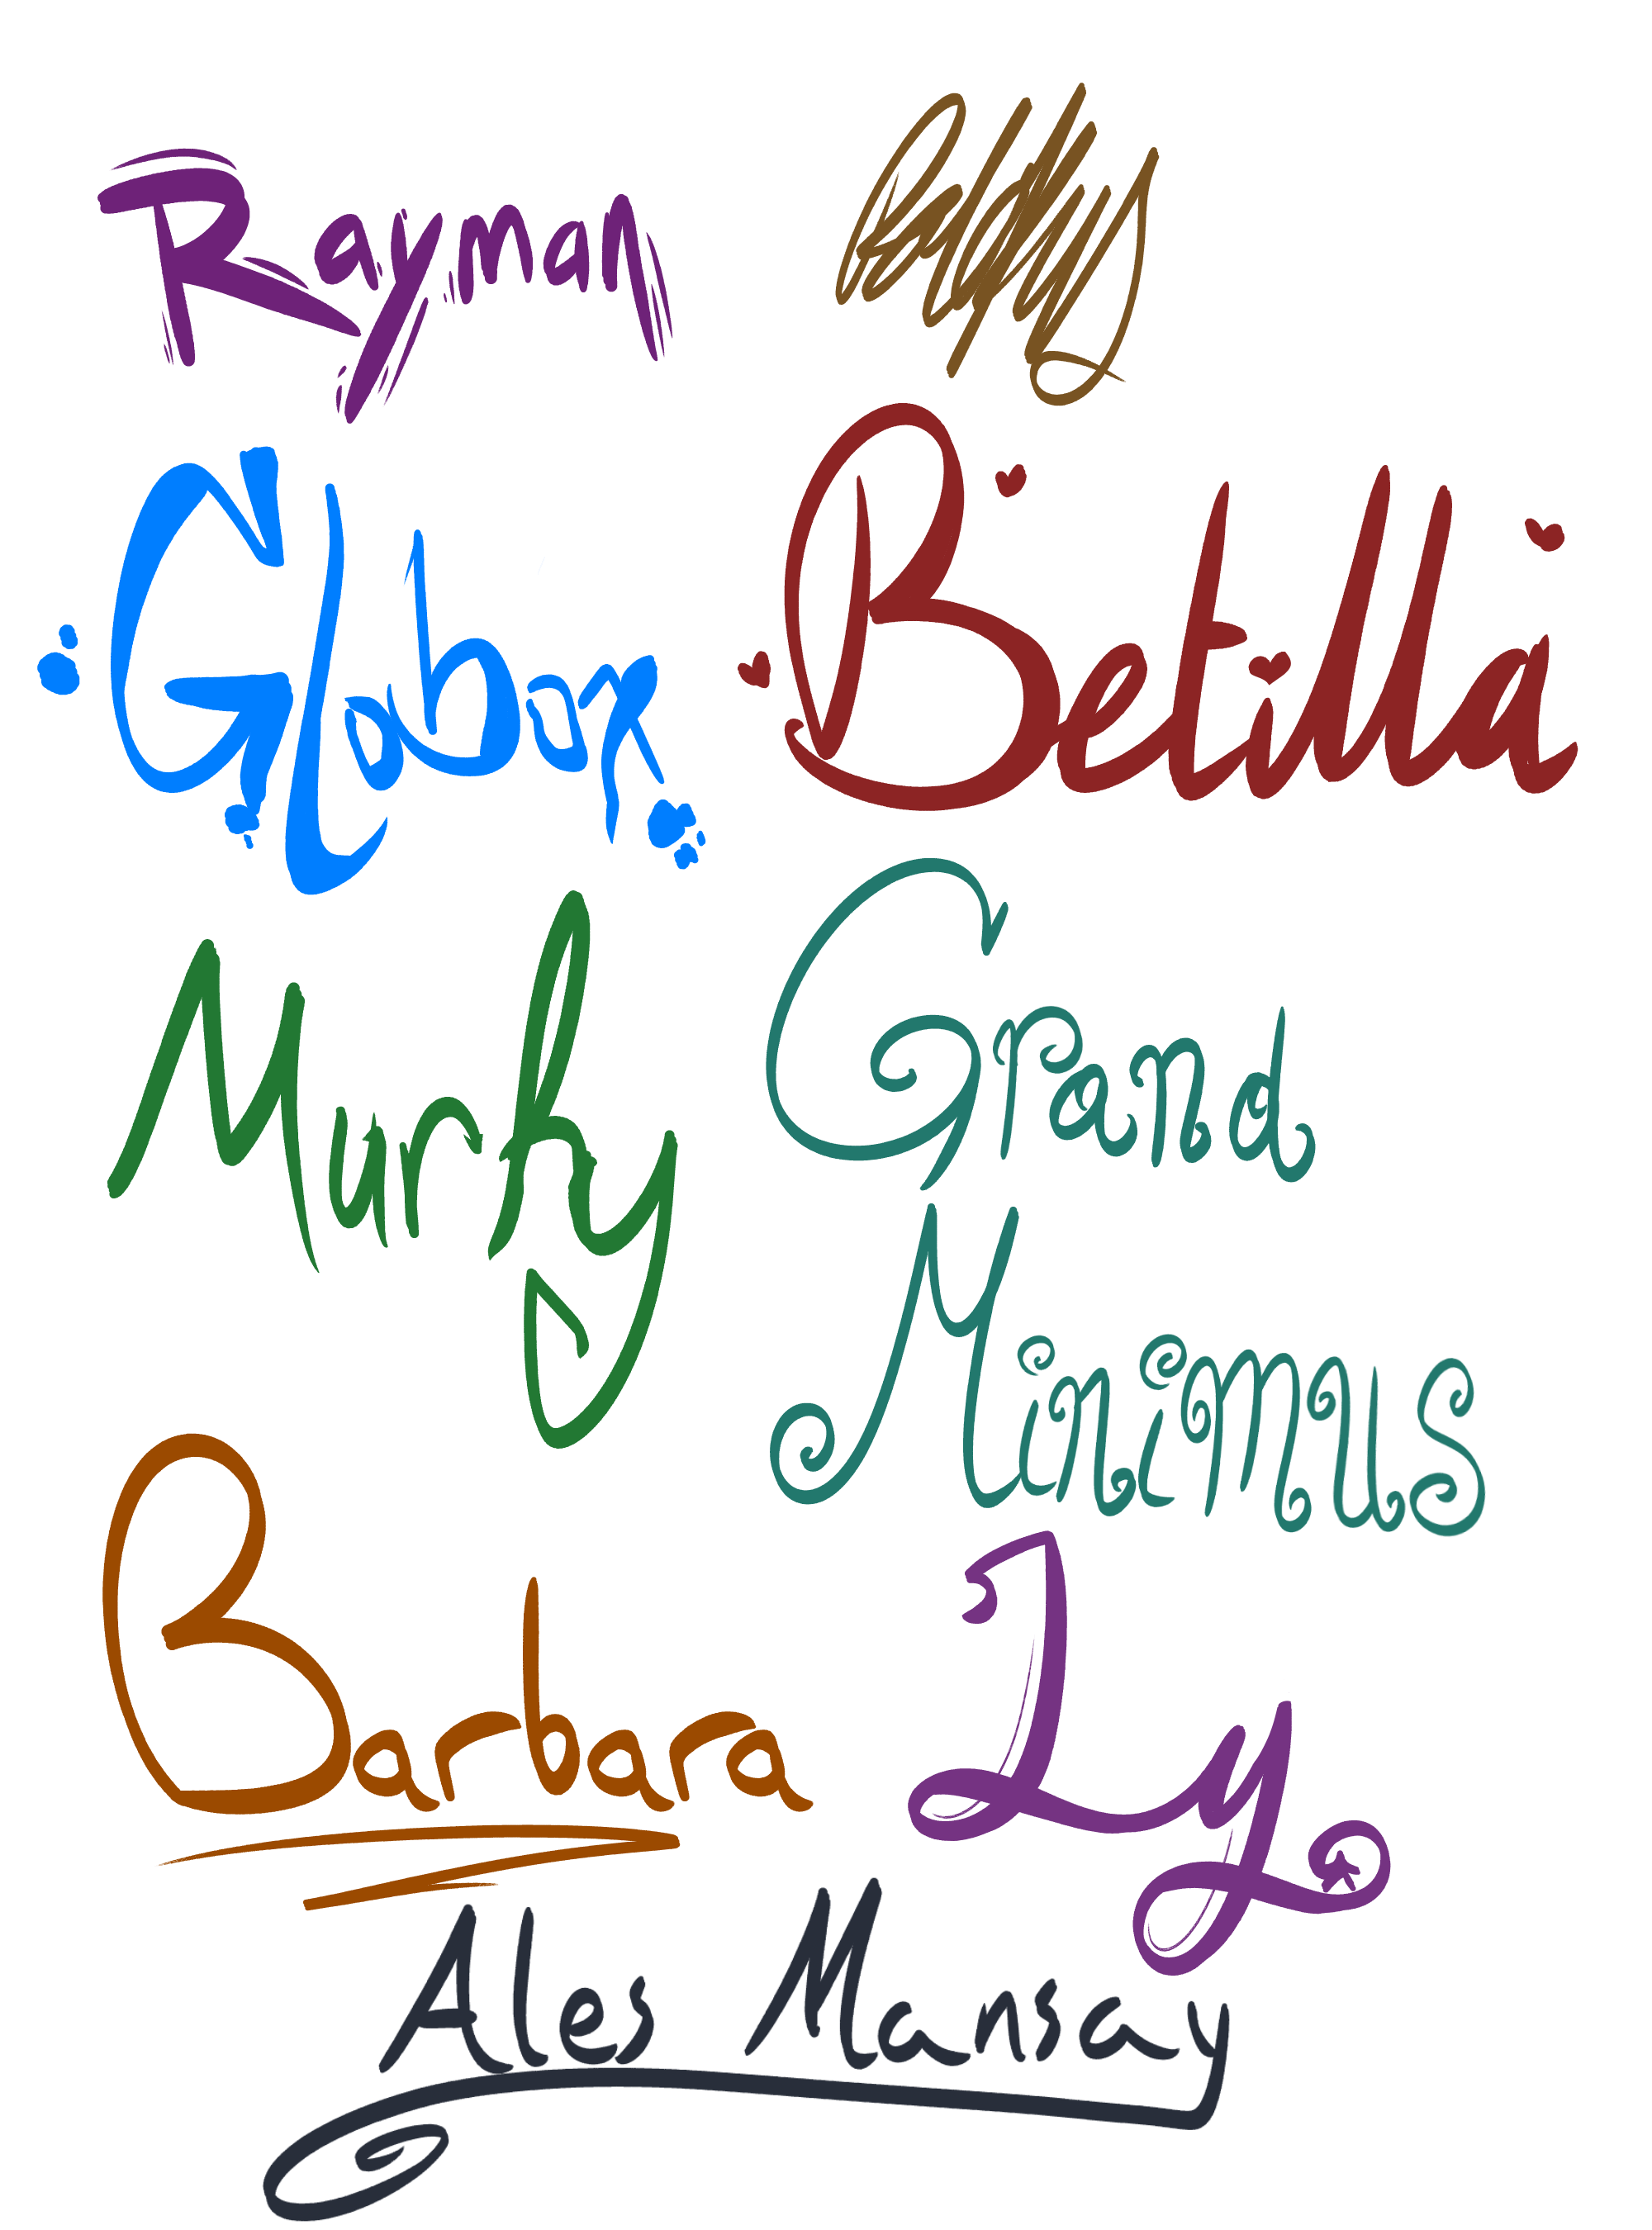 Rayman
Globox
Betilla
Murfy
Grand
Minimus
Barbara
Ly
Ales Mansay